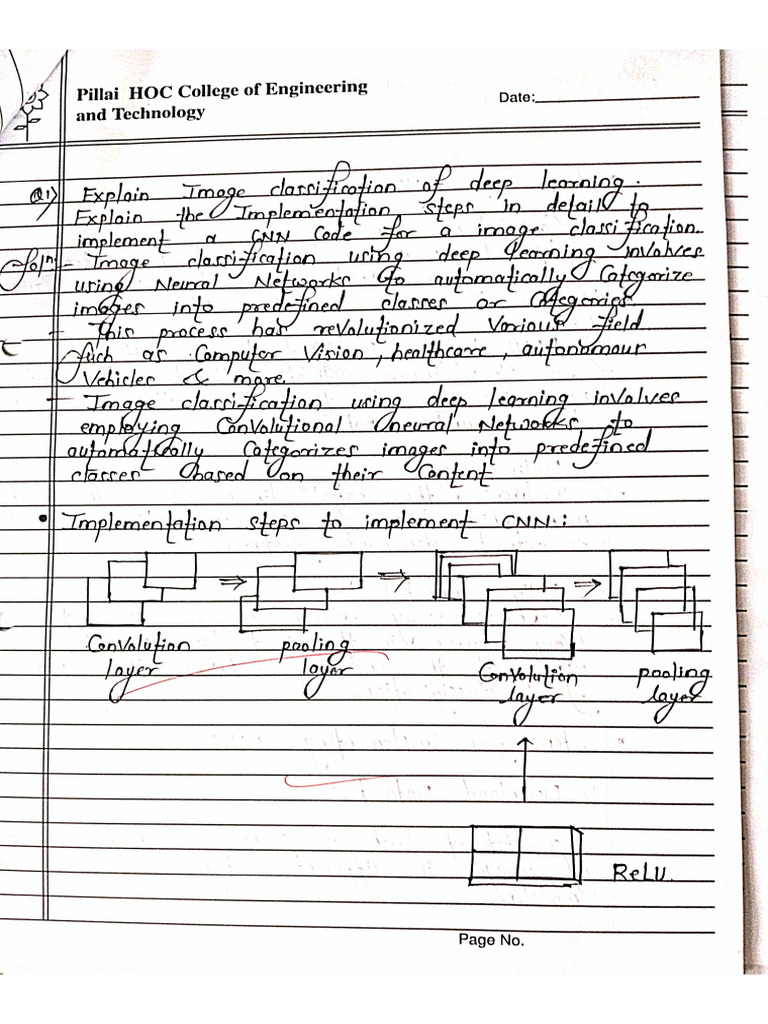 Pillai HOC College of Engineering
and Technology
Date:
Q1) Explain Image classification of deep learning.
Explain the Implementation steps in detail to
implement a CNN Code for a image classification.
Soln:- Image classification using deep learning involves
using Neural Networks to automatically Categorize
images into predefined classes or Categories.
- This process has revolutionized various field
such as Computer Vision, healthcare, autonomour
Vehicles & more.
- Image classification using deep learning involves
employing Convolutional neural Networks to
automatically Categorizes images into predefined
classes based on their Content
• Implementation steps to implement CNN:
⇒ ⇒ ⇒
Convolution
layer
pooling
layer
Convolution
layer
pooling
layer
ReLU.
Page No.